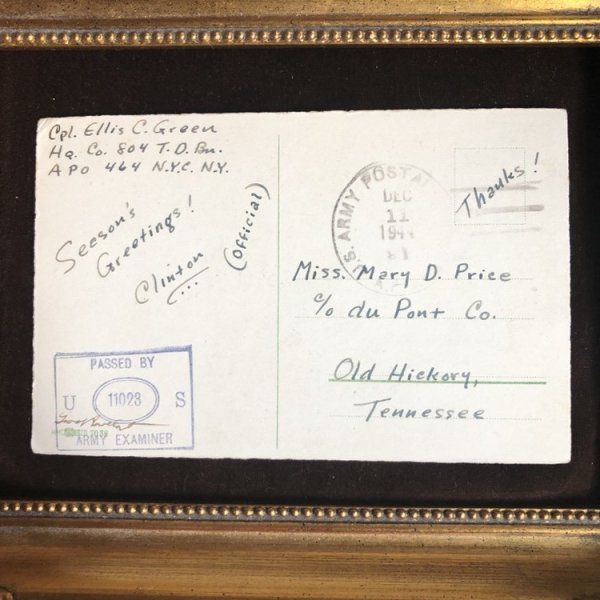 Cpl. Ellis C. Green
Hq. Co. 804 T.D. Bn.
APO 464 N.Y.C. N.Y.
Seeson's
Greetings!
Clinton
(Official)
PASSED BY
U 11023 S
ARMY EXAMINER
U.S. ARMY POSTAL
DEC
11
1944
Thanks!
Miss. Mary D. Price
c/o du Pont Co.
Old Hickory,
Tennessee